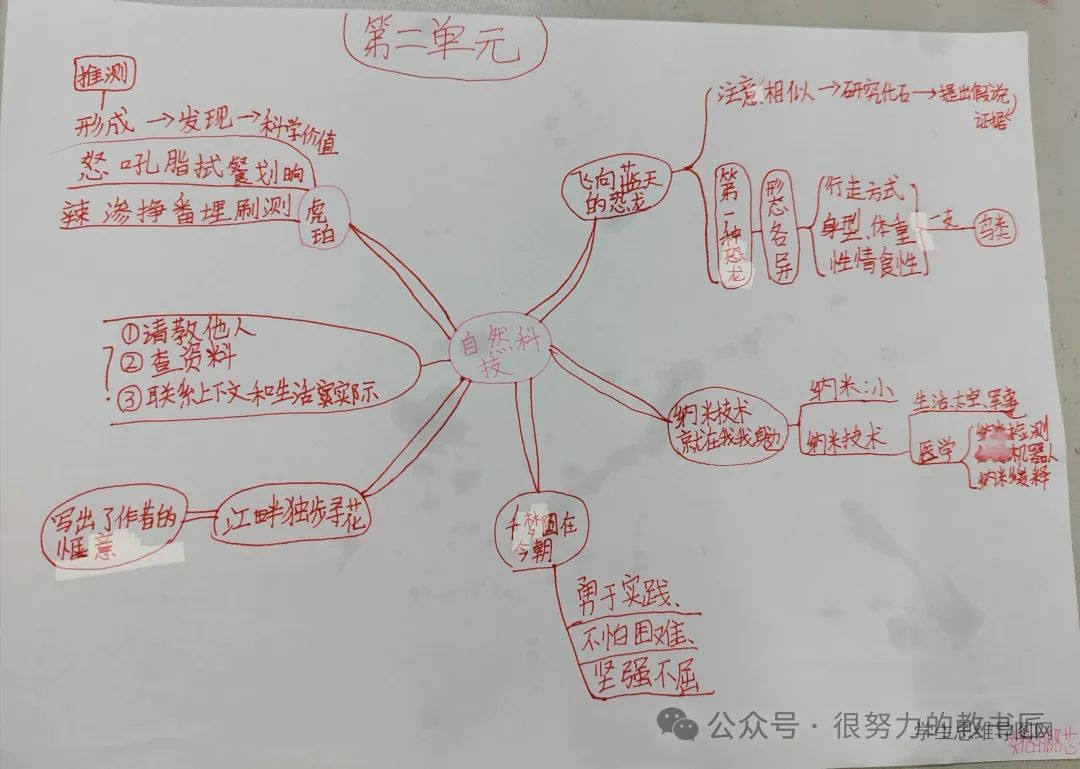 第二单元
推测
形成→发现→科学价值
怒吼脂拭餐划晌
辣渗挣番埋刷测
虎珀
①请教他人
②查资料
③联系上下文和生活实际
江畔独步寻花
写出了作者的
惬意
自然科
技
飞向蓝天
的恐龙
注意相似→研究化石→提出假说
证据
第一种恐龙
形态各异
行走方式
身型、体重
性情食性
一支
鸟类
纳米技术
就在我
纳米:小
纳米技术
生活、太空、军事
医学
检测
机器人
纳米缓释
千梦圆在
今朝
勇于实践、
不怕困难、
坚强不屈
公众号·很努力的教书匠
学生思维导图网